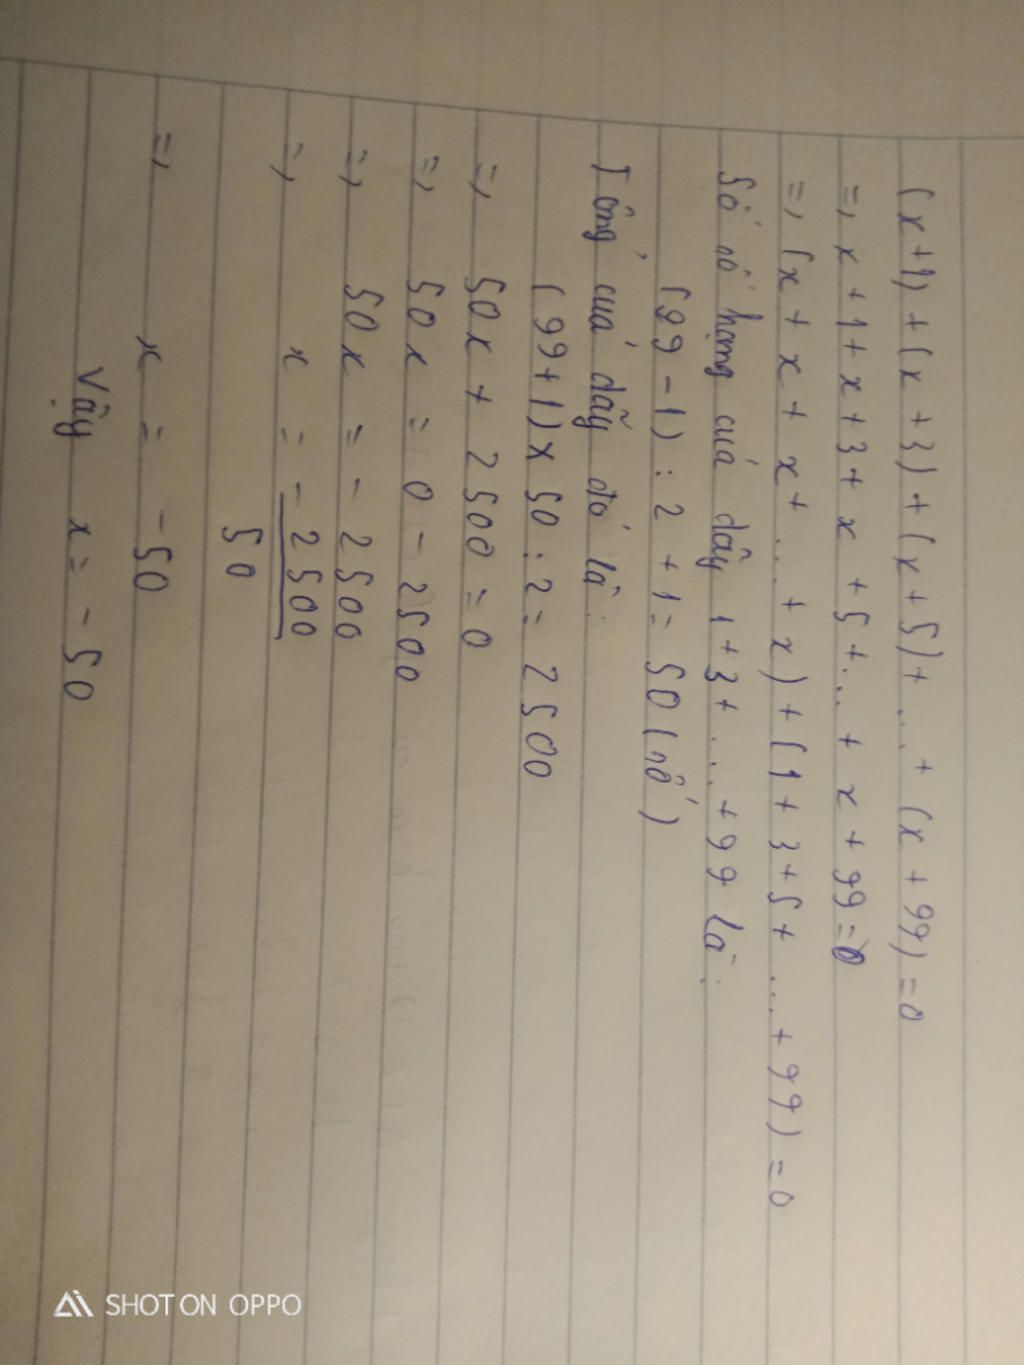 (x+1) + (x+3) + (x+5) + ... + (x+99) = 0
=, x+1+x+3+x+5+...+x+99=0
=, (x+x+x+...+x)+(1+3+5+...+99)=0
Số số hạng của dãy 1+3+...+99 là:
(99-1):2+1=50(số)
Tổng của dãy đó là:
(99+1)x50:2=2500
=, 50x+2500=0
=, 50x=0-2500
=, 50x=-2500
=, x=-2500
50
=, x=-50
Vậy x=-50
SHOT ON OPPO